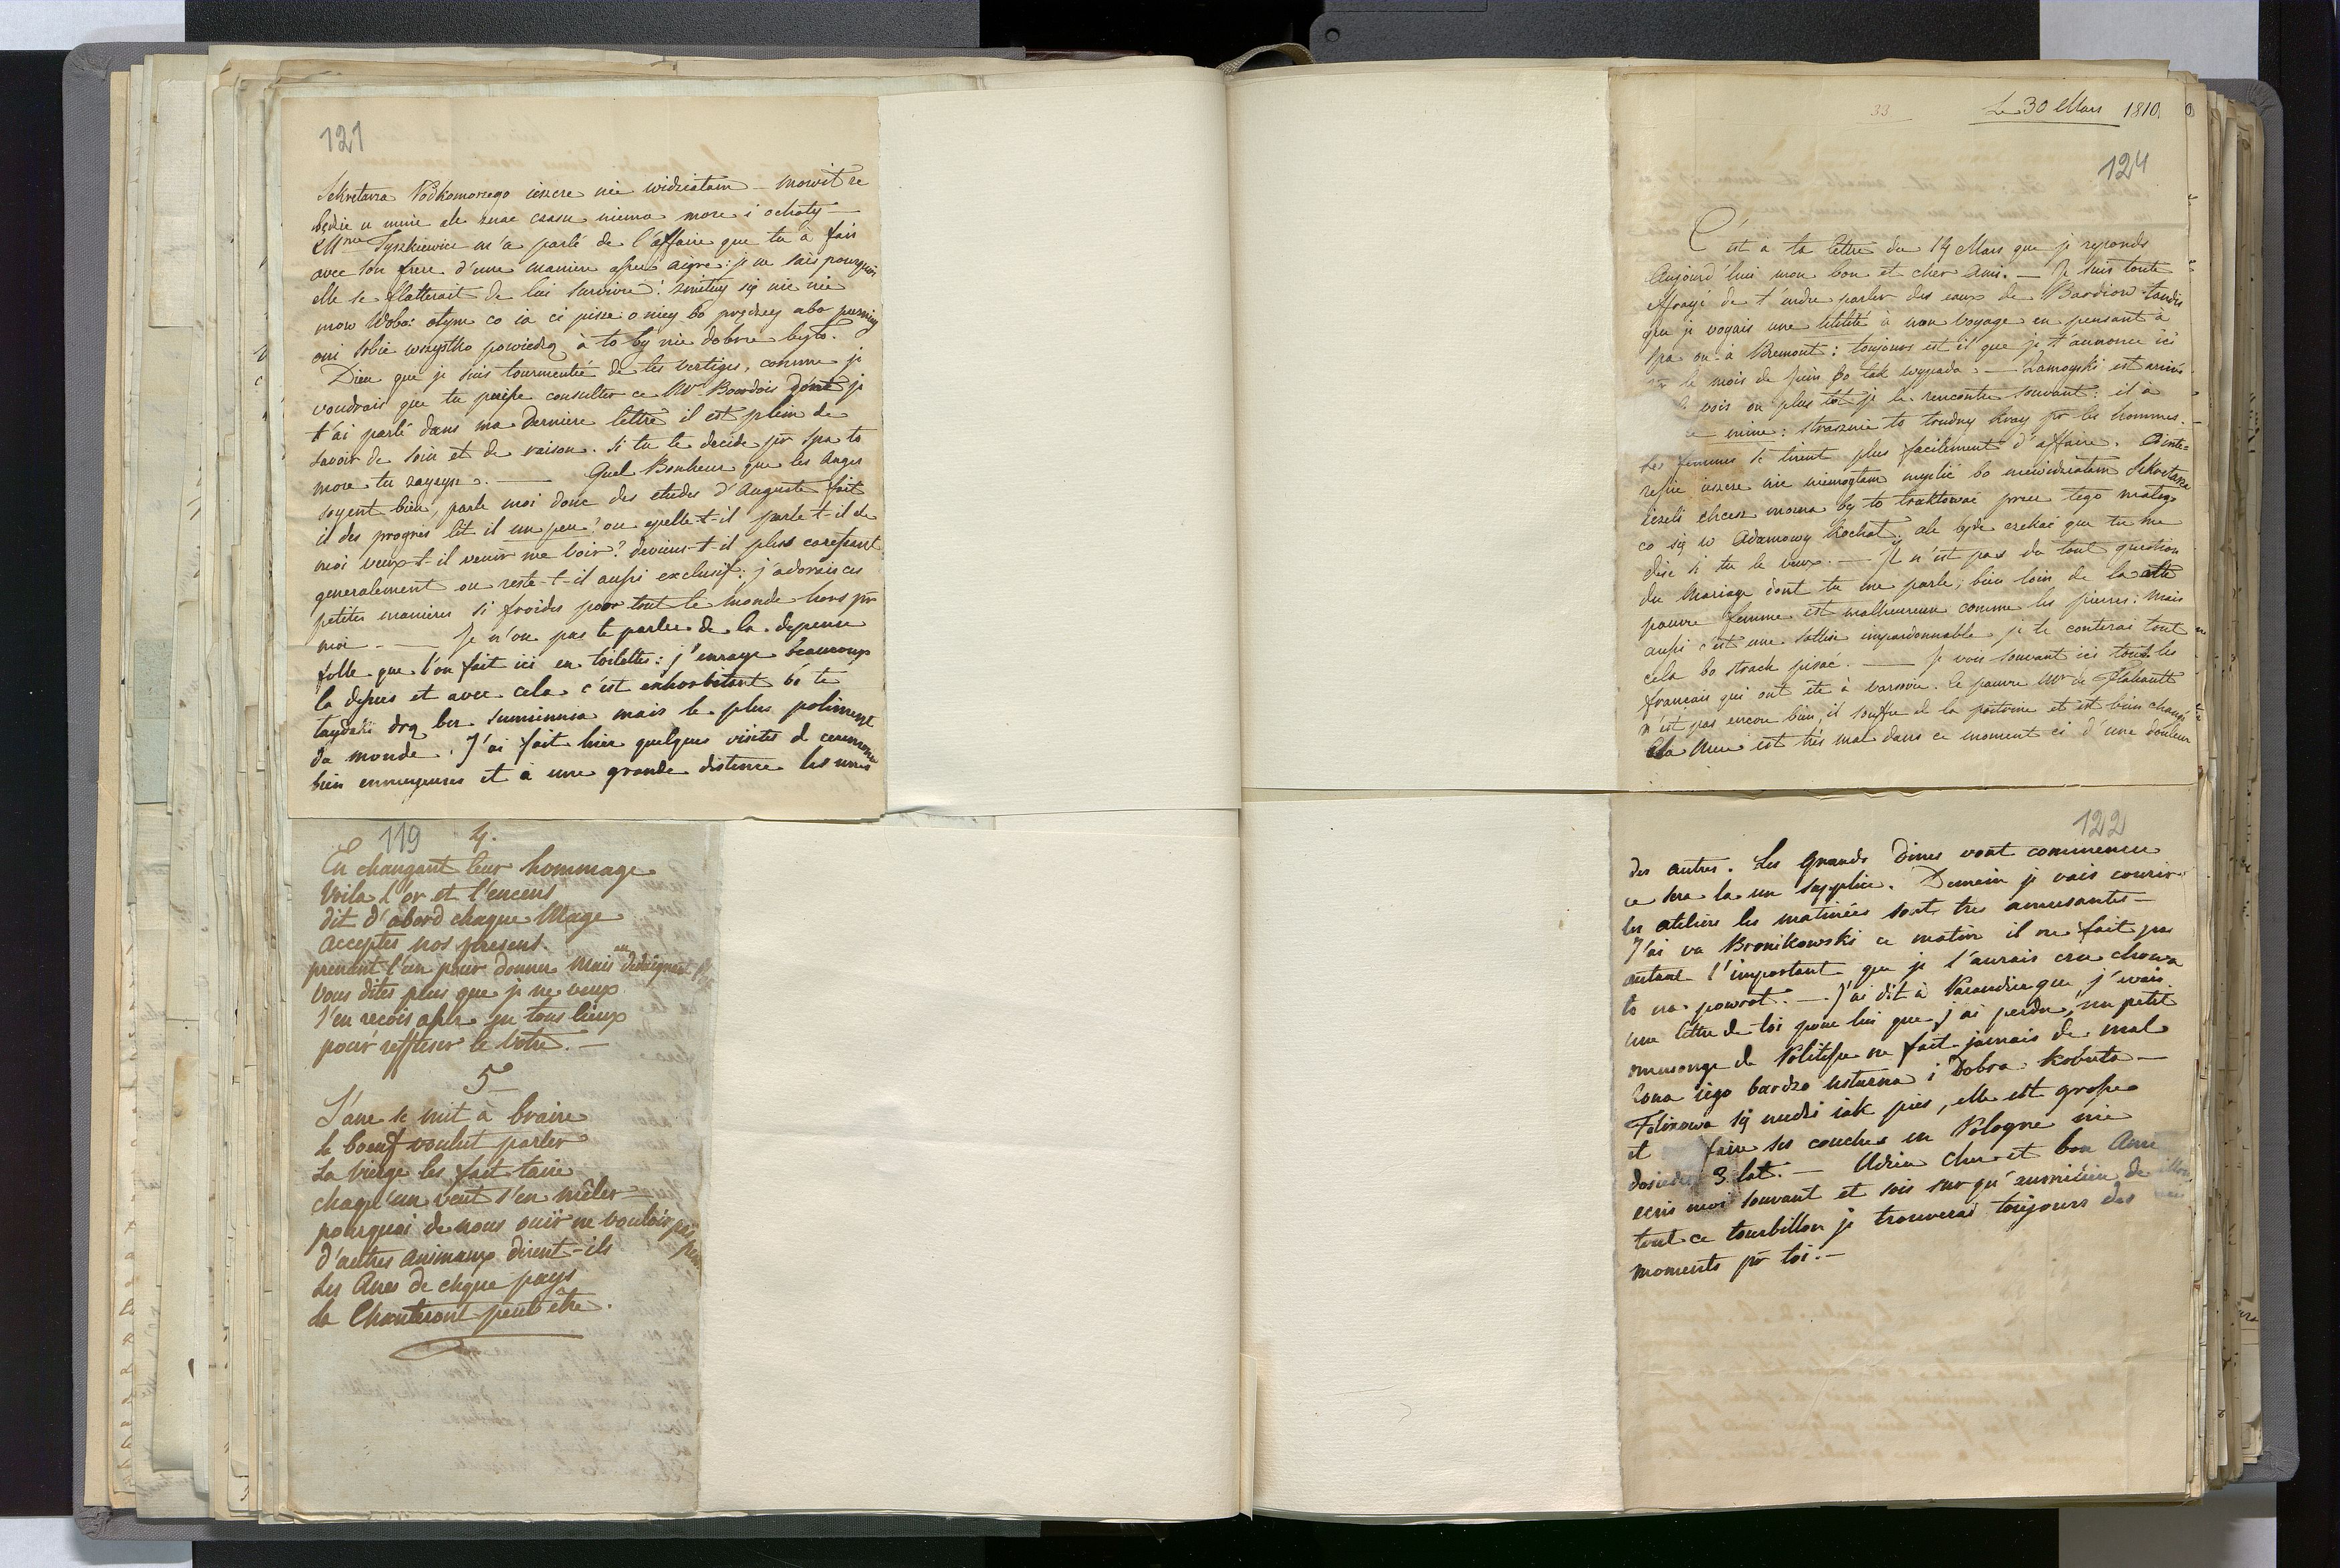 121
Sekretarza Podkomorzego ieszcze nie widziałam – mowił ze
będzie u mnie ale znac czasu niema moze i ochoty –
Mme Tyszkiewicz m'a parlé de l'affaire que tu à fais
avec son frere d'une maniere assez aigre: je ne sais pourquoi
elle se flatterait de lui survivre! zmiłuy się nic nie
mow Wobo: otym co ia ci pisze o niey bo prędzey abo pozniey
oni sobie wszystko powiedzą à to by nie dobrze było.
Dieu que je suis tourmentée de tes vertiges, comme je
voudrais que tu puisse consulter ce Mr Bourdois dont je
t'ai parlé dans ma derniere lettre il est plein de
savoir de soin et de raison. Si tu te decide pr Spa to
moze tu zayzysz. — Quel Bonheur que les Anges
soyent bien, parle moi donc des etudes d'Auguste fait
il des progres lit il un peu? ou epelle-t-il parle-t-il de
moi veux-t-il venir me voir? deviens-t-il plus caressant
generalement ou reste-t-il aussi exclusif: j'adorais ces
petites manieres si froides pour tout le monde hors pr
moi — Je n'ose pas te parler de la depense
folle que l'on fait ici en toilettes: j'enrage beaucoup
la depens et avec cela c'est exhorbitant bo te
łaydaki drą bez sumienia mais le plus poliment
du monde. J'ai fait hier quelques visites d ceremonie
bien ennuyeuses et à une grande distence les unes
119 4.
En changeant leur hommage
Voila l'or et l'encens
dit d'abord chaque Mage
acceptes nos presens.
prenant l'un pour donner mais en dedaignant
Vous dites plus que je ne veux
J'en reçois assez en tous lieux
pour reffuser le votre. –
5
L'ane se mit à braire
le boeuf voulut parler
La Vierge les fait taire
chaqu'un veut s'en mêler
pourquoi de nous ouïr ne vouloir pas
d'autres animaux dirent-ils
Les Anes de chque pays
la Chanteront peut être.
33 Le 30 Mars 1810
124
C'est à ta lettre du 14 Mars que je reponds
Aujourd'hui mon bon et cher ami. – Je suis toute
effrayé de t'endre parler des eaux de Bardiow tandis
que je voyais une utilité à mon voyage en pensant à
Spa ou à Bremont: toujours est il que je t'annonce ici
le mois de Juin bo tak wypada. – Zamoyski est arrivé
vois ou plus tôt je le rencontre souvant: il à
mine: strasznie to trudny kray pr les hommes.
Les femmes se tirent plus facilement d'affaire. O inte=
resie ieszcze nie niemogłam mysliċ bo niewidziałam Sekretarza
iezeli chcesz mozna by to traktować przez tego małego
co się w Adamowy kochał; ale będe czekać que tu me
dise si tu le veux. — Il n'est pas du tout question
du Mariage dont tu me parle, bien loin de la cette
pauvre femme est malheureuse comme les pierres: mais
aussi c'est une sottise impardonnable je te conterai tout
cela bo strach pisać. — Je vois souvant ici tous les
français qui ont été à varsovie. le pauvre Mr de Flahault
n'est pas encore bien, il souffre de la poitrine et est bien changé
Sa Mere est très mal dans ce moment ci d'une douleur
122
des autres. Les Grands Dines vont commencer
ce sera la un supplice. Demain je vais courir
les ateliers les matinées sont tres amusantes –
J'ai vu Bronikowski ce matin il ne fait pas
autant l'important que je l'aurais cru chowa
to na powrot. — J'ai dit à que j'avais
une lettre de toi pour lui que j'ai perdu, un petit
mensonge de Politesse ne fait jamais de mal
Zona iego bardzo usłuzna i Dobra kobieta —
Felixowa się nudzi iak pies, elle est grosse
et faire ses couches en Pologne nie
3 lat. — Adieu Cher et bon Ami
ecris moi souvant et sois sur qu'aumilieu de
tout ce tourbillon je trouverai toujours des
moments pr toi. –